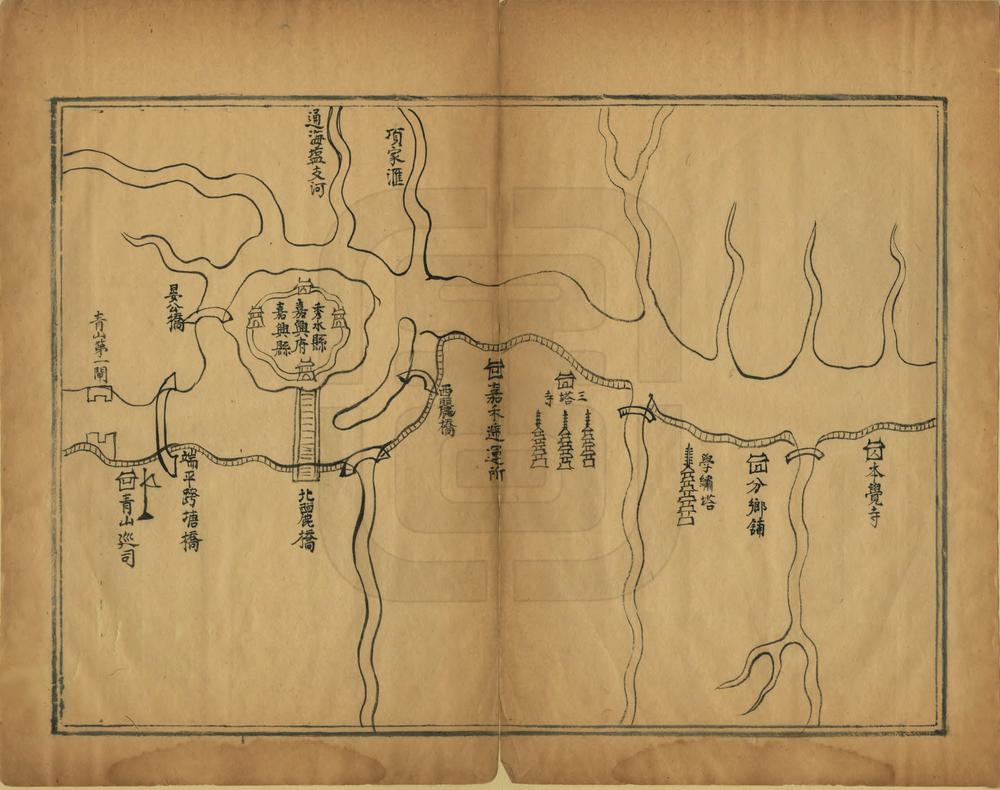 通海塩支河
項家滙
本覺寺
分鄉舖
學繡塔
三塔寺
嘉禾遞運所
西麗橋
秀水縣
嘉興府
嘉興縣
北麗橋
晏公橋
端平跨塘橋
青山巡司
青山第一閘